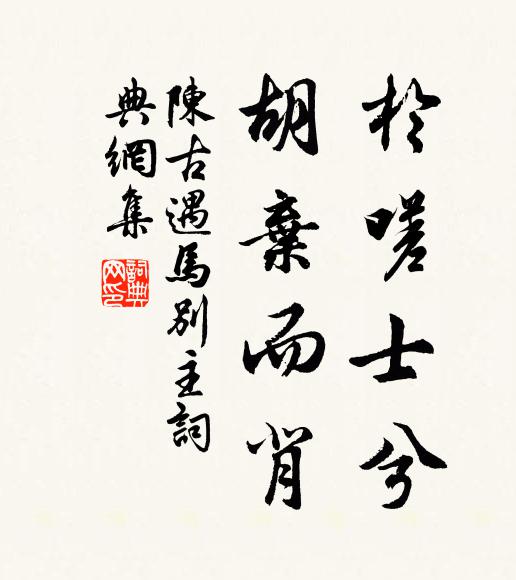 於嗟士兮
胡棄而肖
陳古遇馬別主詞
典網集
詞典
网印